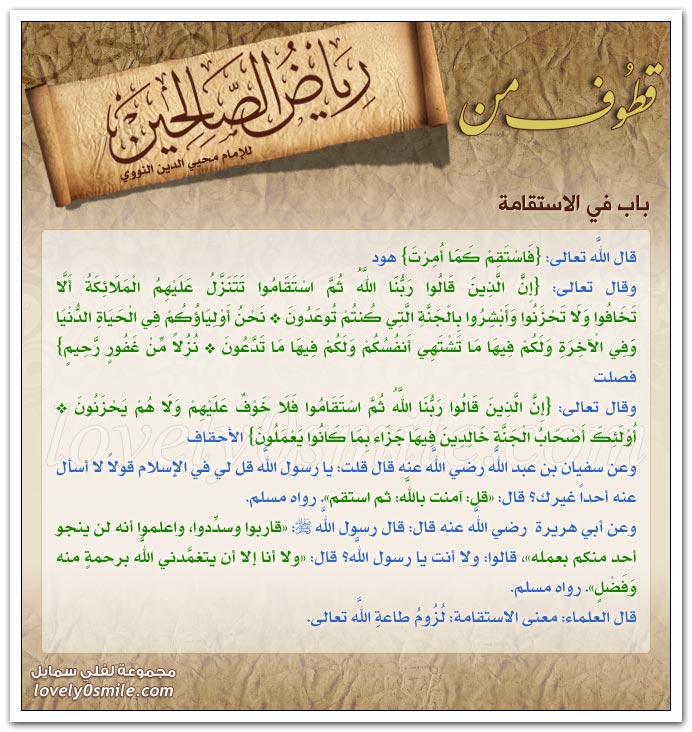 قطوف من
رياض الصالحين
للإمام محيي الدين النووي
باب في الاستقامة
قال اللَّه تعالى: {فَاسْتَقِمْ كَمَا أُمِرْتَ} هود
وقال تعالى: {إِنَّ الَّذِينَ قَالُوا رَبُّنَا اللَّهُ ثُمَّ اسْتَقَامُوا تَتَنَزَّلُ عَلَيْهِمُ الْمَلَائِكَةُ أَلَّا
تَخَافُوا وَلَا تَحْزَنُوا وَأَبْشِرُوا بِالْجَنَّةِ الَّتِي كُنتُمْ تُوعَدُونَ * نَحْنُ أَوْلِيَاؤُكُمْ فِي الْحَيَاةِ الدُّنْيَا
وَفِي الْآخِرَةِ وَلَكُمْ فِيهَا مَا تَشْتَهِي أَنفُسُكُمْ وَلَكُمْ فِيهَا مَا تَدَّعُونَ * نُزُلاً مِّنْ غَفُورٍ رَّحِيمٍ}
فصلت
وقال تعالى: {إِنَّ الَّذِينَ قَالُوا رَبُّنَا اللَّهُ ثُمَّ اسْتَقَامُوا فَلَا خَوْفٌ عَلَيْهِمْ وَلَا هُمْ يَحْزَنُونَ *
أُوْلَئِكَ أَصْحَابُ الْجَنَّةِ خَالِدِينَ فِيهَا جَزَاء بِمَا كَانُوا يَعْمَلُونَ} الأحقاف
وعن سفيان بن عبد اللَّه رضي اللَّه عنه قال قلت: يا رسول اللَّه قل لي في الإسلام قولاً لا أسأل
عنه أحداً غيرك؟ قال: «قل: آمنت باللَّه: ثم استقم». رواه مسلم.
وعن أبي هريرة رضي اللَّه عنه قال: قال رسول اللَّه ﷺ: «قاربوا وسدِّدوا، واعلموا أنه لن ينجو
أحد منكم بعمله»، قالوا: ولا أنت يا رسول اللَّه؟ قال: «ولا أنا إلا أن يتغمَّدني اللَّه برحمةٍ منه
وَفَضْلٍ». رواه مسلم.
قال العلماء: معنى الاستقامة: لُزُومُ طاعةِ اللَّه تعالى.
lovely0smile.com
مجموعة لفلي سمايل
lovely0smile.com